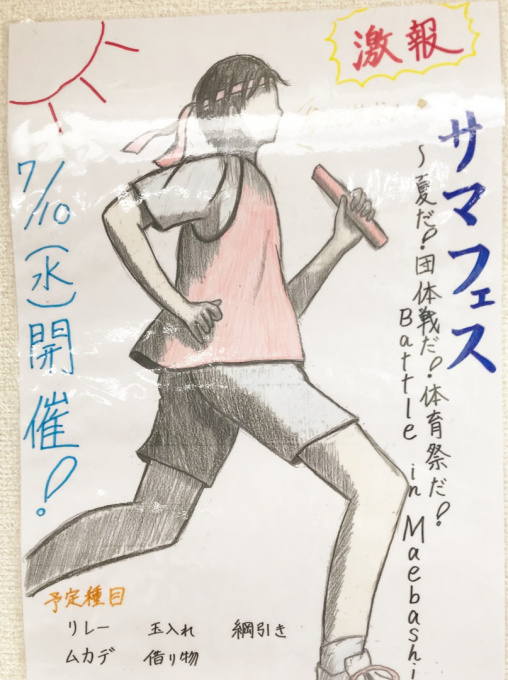 激報
サマフェス
～夏だ!団体戦だ!体育祭だ!
Battle in Maebashi
7/10(水)開催!
予定種目
リレー 玉入れ 綱引き
ムカデ 借り物